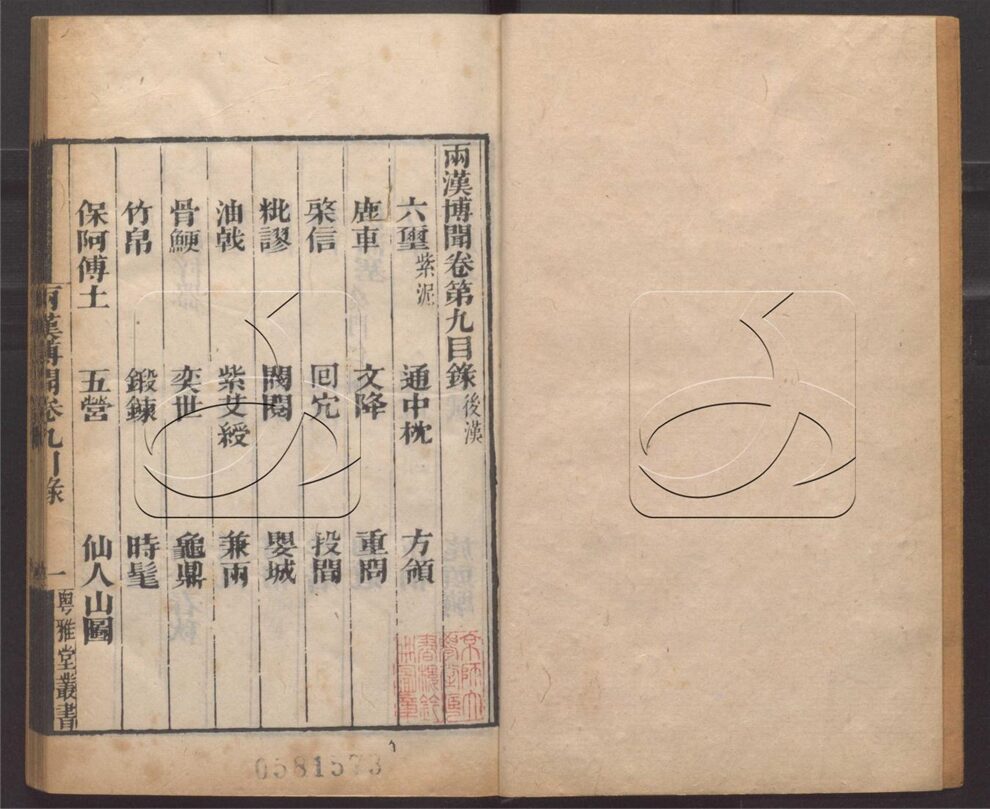 兩漢博聞卷第九目錄後漢
六璽紫泥 通中枕 方領
鹿車 文降 重問
棨信 囘宂 投閒
紕謬 閥閱 嬰城
油戟 紫艾綬 兼兩
骨鯁 奕世 龜鼎
竹帛 鍛鍊 時髦
保阿傅土 五營 仙人山圖
兩漢博聞卷九目錄 一 粤雅堂叢書
0581573